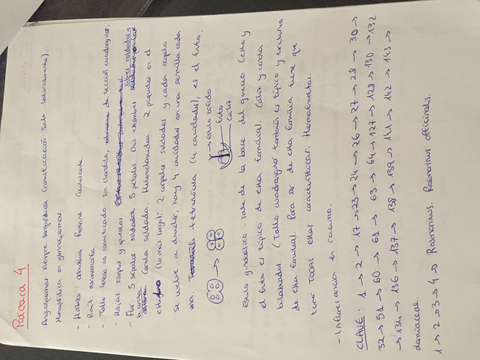 Práctica 4
Angiospermas siempre
Monofilética en gimnospermas.
- Hábito:
- Raíz axonomorfa.
- Tallo leñoso no ramificado sin de sección cuadrangular.
- Hojas simples y opuestas
- Flor 5 sépalos soldados, 5 pétalos. Dos estambres
corola soldada. Hermafrodita. 2 carpelos en el
(lo más largo). 2 carpelos soldados y cada carpelo
se vuelve a dividir, hay 4 cavidades con una semilla cada
una. tetranúcula (4 cavidades), es el fruto.
fruto
cáliz
Estilo ginobásico: sale de la base del gineceo (este y
el fruto es típico de esta familia). Cáliz y corola
bilabiados. (Tallo cuadrangular también es típico y exclusivo
de esta familia). Para ser de esta familia tiene que
tener TODAS estas características. Hermafroditas.
- Inflorescencia en racimo.
CLAVE: 1 → 2 → 17 → 23 → 24 → 26 → 27 → 28 → 30 →
32 → 51 → 60 → 61 → 63 → 64 → 127 → 128 → 130 → 132
→ 134 → 136 → 137 → 138 → 139 → 141 → 142 → 143 →
Lamiaceae
1 → 2 → 3 → 4 → Rosmarinus. Rosmarinus officinalis.